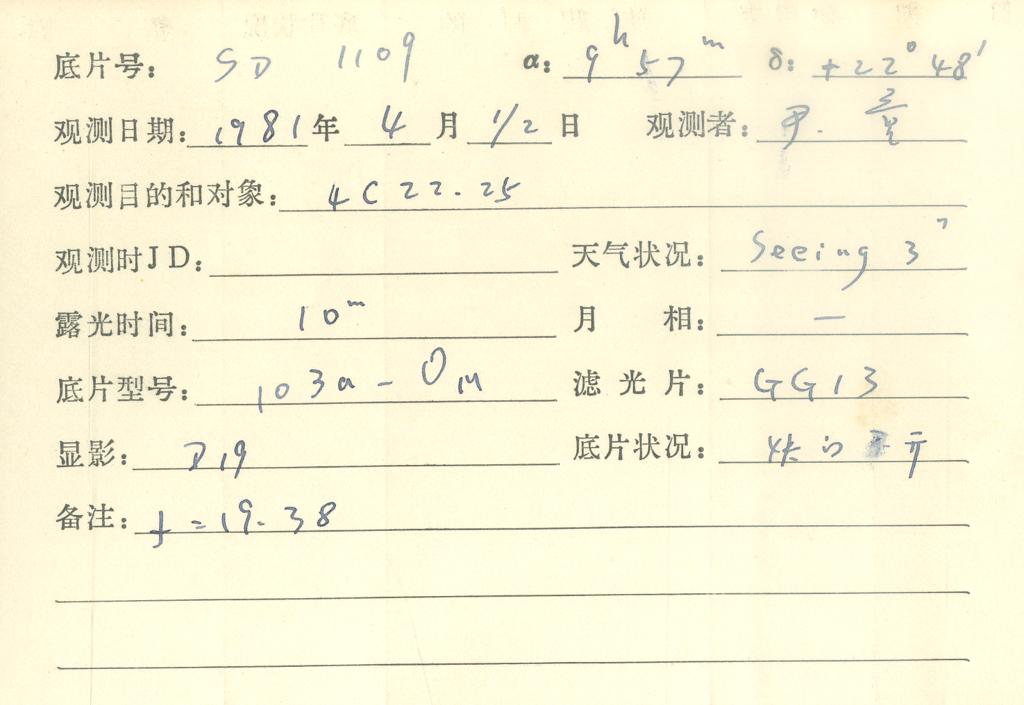 底片号: SD 1109 α: 9h 57m δ: +22° 48′
观测日期: 1981 年 4 月 1/2 日 观测者:
观测目的和对象: 4C 22.25
观测时JD: 天气状况: Seeing 3″
露光时间: 10m 月 相: —
底片型号: 103a-O 滤光片: GG13
显影: D19 底片状况:
备注: f=19.38